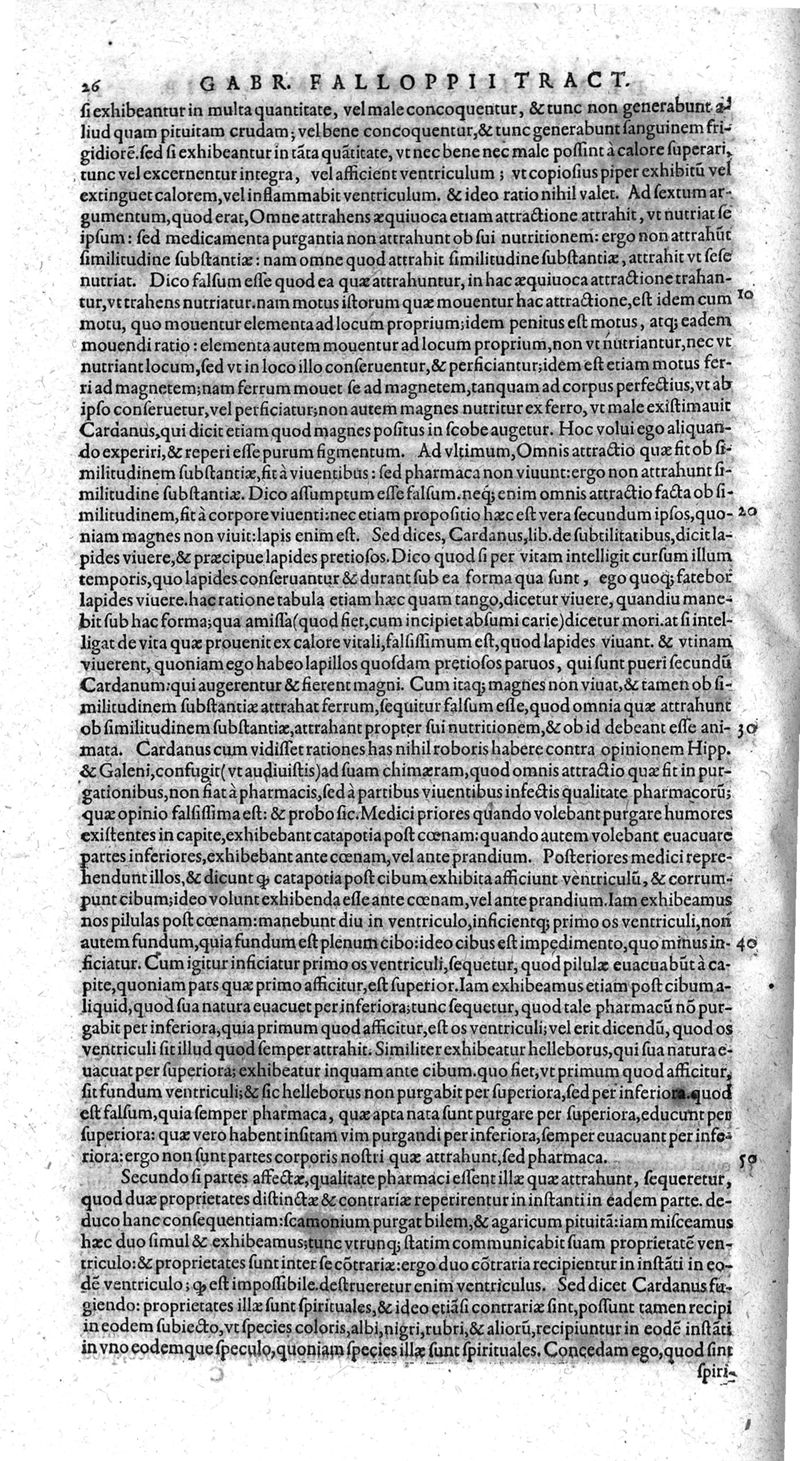 26 GABR. FALLOPPII TRACT.
ſi exhibeantur in multa quantitate, vel male concoquentur, & tunc non generabunt a-
liud quam pituitam crudam; vel bene concoquentur,& tunc generabunt ſanguinem fri-
gidiorẽ.ſed ſi exhibeantur in tãta quãtitate, vt nec bene nec male poſſint à calore ſuperari,
tunc vel excernentur integra, vel afficient ventriculum ; vt copioſius piper exhibitũ vel
extinguet calorem,vel inflammabit ventriculum. & ideo ratio nihil valet. Ad ſextum ar-
gumentum,quod erat,Omne attrahens æquiuoca etiam attractione attrahit, vt nutriat ſe
ipſum: ſed medicamenta purgantia non attrahunt ob ſui nutritionem: ergo non attrahũt
ſimilitudine ſubſtantiæ: nam omne quod attrahit ſimilitudine ſubſtantiæ, attrahit vt ſeſe
nutriat. Dico falſum eſſe quod ea quæ attrahuntur, in hac æquiuoca attractione trahan-
tur,vt trahens nutriatur.nam motus iſtorum quæ mouentur hac attractione,eſt idem cum 10
motu, quo mouentur elementa ad locum proprium;idem penitus eſt motus, atq; eadem
mouendi ratio : elementa autem mouentur ad locum proprium,non vt nutriantur,nec vt
nutriant locum,ſed vt in loco illo conſeruentur,& perficiantur;idem eſt etiam motus fer-
ri ad magnetem;nam ferrum mouet ſe ad magnetem,tanquam ad corpus perfectius,vt ab
ipſo conſeruetur,vel perficiatur;non autem magnes nutritur ex ferro, vt male exiſtimauit
Cardanus,qui dicit etiam quod magnes poſitus in ſcobe augetur. Hoc volui ego aliquan-
do experiri,& reperi eſſe purum figmentum. Ad vltimum,Omnis attractio quæ fit ob ſi-
militudinem ſubſtantiæ,fit à viuentibus : ſed pharmaca non viuunt:ergo non attrahunt ſi-
militudine ſubſtantiæ. Dico aſſumptum eſſe falſum.neq; enim omnis attractio facta ob ſi-
militudinem,fit à corpore viuenti:nec etiam propoſitio hæc eſt vera ſecundum ipſos,quo- 20
niam magnes non viuit:lapis enim eſt. Sed dices, Cardanus,lib.de ſubtilitatibus,dicit la-
pides viuere,& præcipue lapides pretioſos.Dico quod ſi per vitam intelligit curſum illum
temporis,quo lapides conſeruantur & durant ſub ea forma qua ſunt, ego quoq; fatebor
lapides viuere.hac ratione tabula etiam hæc quam tango,dicetur viuere, quandiu mane-
bit ſub hac forma;qua amiſſa(quod fiet,cum incipiet abſumi carie)dicetur mori.at ſi intel-
ligat de vita quæ prouenit ex calore vitali,falſiſſimum eſt,quod lapides viuant. & vtinam
viuerent, quoniam ego habeo lapillos quoſdam pretioſos paruos, qui ſunt pueri ſecundũ
Cardanum:qui augerentur & fierent magni. Cum itaq; magnes non viuat,& tamen ob ſi-
militudinem ſubſtantiæ attrahat ferrum,ſequitur falſum eſſe,quod omnia quæ attrahunt
ob ſimilitudinem ſubſtantiæ,attrahant propter ſui nutritionem,& ob id debeant eſſe ani- 30
mata. Cardanus cum vidiſſet rationes has nihil roboris habere contra opinionem Hipp.
& Galeni,confugit( vt audiuiſtis)ad ſuam chimæram,quod omnis attractio quæ fit in pur-
gationibus,non fiat à pharmacis,ſed à partibus viuentibus infectis qualitate pharmacorũ;
quæ opinio falſiſſima eſt: & probo ſic.Medici priores quando volebant purgare humores
exiſtentes in capite,exhibebant catapotia poſt cœnam: quando autem volebant euacuare
partes inferiores,exhibebant ante cœnam,vel ante prandium. Poſteriores medici repre-
hendunt illos,& dicunt ꝙ catapotia poſt cibum exhibita afficiunt ventriculũ, & corrum-
punt cibum;ideo volunt exhibenda eſſe ante cœnam,vel ante prandium.Iam exhibeamus
nos pilulas poſt cœnam:manebunt diu in ventriculo,inficientq; primo os ventriculi,non
autem fundum,quia fundum eſt plenum cibo:ideo cibus eſt impedimento,quo minus in- 40
ficiatur. Cum igitur inficiatur primo os ventriculi,ſequetur, quod pilulæ euacuabũt à ca-
pite,quoniam pars quæ primo afficitur,eſt ſuperior.Iam exhibeamus etiam poſt cibum a-
liquid,quod ſua natura euacuet per inferiora;tunc ſequetur, quod tale pharmacũ nõ pur-
gabit per inferiora,quia primum quod afficitur,eſt os ventriculi;vel erit dicendũ, quod os
ventriculi ſit illud quod ſemper attrahit. Similiter exhibeatur helleborus,qui ſua natura e-
uacuat per ſuperiora; exhibeatur inquam ante cibum.quo fiet,vt primum quod afficitur,
ſit fundum ventriculi;& ſic helleborus non purgabit per ſuperiora,ſed per inferiora.quod
eſt falſum,quia ſemper pharmaca, quæ apta nata ſunt purgare per ſuperiora,educunt per
ſuperiora: quæ vero habent inſitam vim purgandi per inferiora,ſemper euacuant per infe-
riora:ergo non ſunt partes corporis noſtri quæ attrahunt,ſed pharmaca. 50
Secundo ſi partes affectæ,qualitate pharmaci eſſent illæ quæ attrahunt, ſequeretur,
quod duæ proprietates diſtinctæ & contrariæ reperirentur in inſtanti in eadem parte. de-
duco hanc conſequentiam:ſcamonium purgat bilem,& agaricum pituitã:iam miſceamus
hæc duo ſimul & exhibeamus;tunc vtrunq; ſtatim communicabit ſuam proprietatẽ ven-
triculo:& proprietates ſunt inter ſe cõtrariæ:ergo duo cõtraria recipientur in inſtãti in eo-
dẽ ventriculo; ꝙ eſt impoſſibile.deſtrueretur enim ventriculus. Sed dicet Cardanus fu-
giendo: proprietates illæ ſunt ſpirituales,& ideo etiãſi contrariæ ſint,poſſunt tamen recipi
in eodem ſubiecto,vt ſpecies coloris,albi,nigri,rubri,& aliorũ,recipiuntur in eodẽ inſtãti
in vno eodemque ſpeculo,quoniam ſpecies illæ ſunt ſpirituales. Concedam ego,quod ſint
ſpiri-